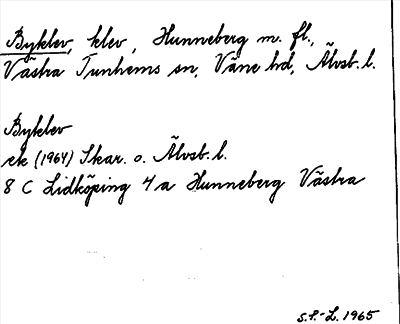 Byklev, klev, Hunneberg m. fl.,
Västra Tunhems sn, Väne hd, Älvsb. l.
Byklev
ek (1964) Skar. o. Älvsb. l.
8 C Lidköping 4 a Hunneberg Västra
S.P.-L. 1965